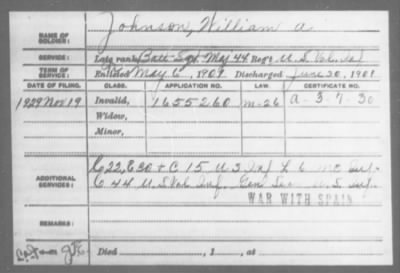 NAME OF SOLDIER: Johnson, William A
SERVICE: Late rank Batt Sgt Maj 44 Reg't U.S. Vol. Inf
TERM OF SERVICE: Enlisted May 6, 1909. Discharged June 30, 1901
DATE OF FILING. CLASS. APPLICATION NO. LAW. CERTIFICATE NO.
1929 Nov 19 Invalid, 1655260 m-26 A-3-7-30
Widow,
Minor,
C 22, E 30 + C 15 U.S. Inf L 6 Inf.
ADDITIONAL SERVICES: C 44 U.S. Vol. Inf. Gen. U.S. Inf.
WAR WITH SPAIN
REMARKS:
Died , 1 , at